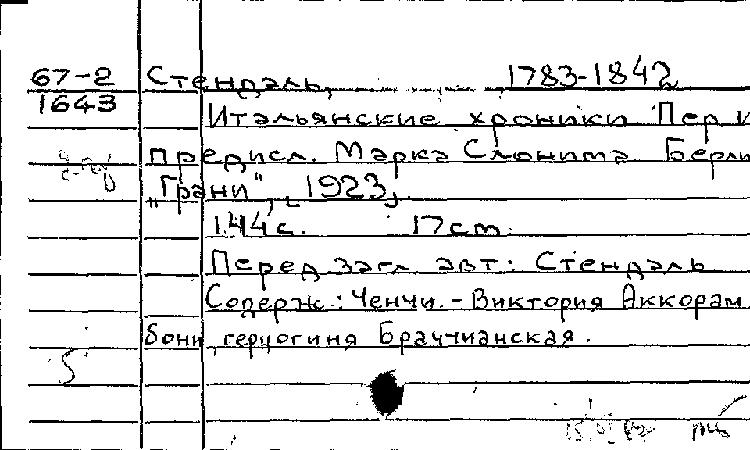 67-2 Стендаль, 1783-1842
1643
Итальянские хроники Пер и
предисл. Марка Слонима Берли
„Грани“, [1923]
144 с. 17 cm
Перед загл. авт: Стендаль
Содерж: Ченчи. - Виктория Аккорам
бони, герцогиня Браччианская.